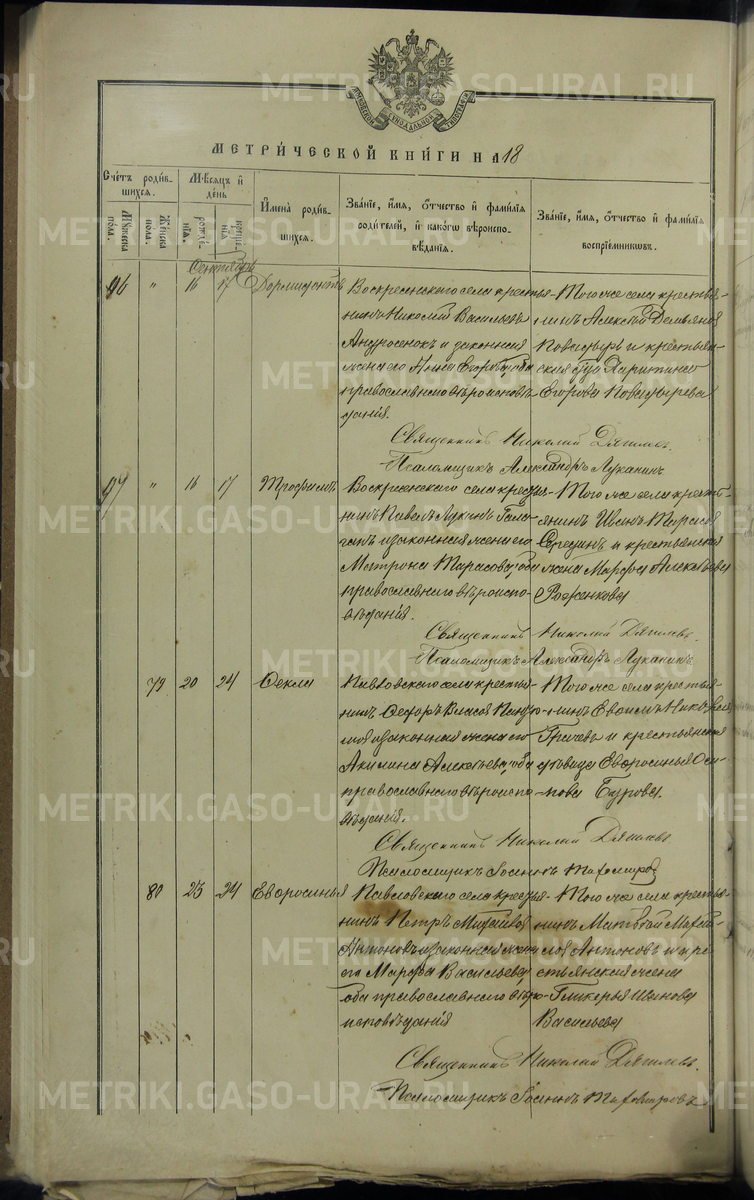 МЕТРИ́ЧЕСКОЙ КНИ́ГИ НА 18
Счетъ родив-
шихся.
Мужеска
пола.
Женска
пола.
Мѣсяцъ и
день
рожде-
нія.
креще-
нія
Имена родив-
шихся.
Званіе, имя, отчество и фамилія
родителей, и какого вѣроиспо-
вѣданія.
Званіе, имя, отчество и фамилія
воспріемниковъ.
Сентябрь
96 " 16 17 Дормидонтъ
Воскресенскаго села крестья-
нинъ Николай Васильевъ
Андросенокъ и законная
жена его Анна Егорова, оба
православнаго вѣроисповѣ-
данія.
Того же села крестья-
нинъ Алексѣй Демьяновъ
Повадырь и крестьян-
ская
Егорова Повадырева
Священникъ Николай Дягилевъ.
Псаломщикъ Александръ Луканинъ
97 " 16 17 Трофимъ
Воскресенскаго села крестья-
нинъ Павелъ Лукинъ Гала-
ганъ и законная жена его
Матрона Тарасова, оба
православнаго вѣроиспо-
вѣданія.
Того же села кресть-
янинъ Иванъ Тарасов
и крестьянская
жена Марфа Алексѣева
Роженкова
Священникъ Николай Дягилевъ.
Псаломщикъ Александръ Луканинъ
79 20 24 Ѳекла
Павловскаго села крестья-
нинъ Ѳедоръ Власов
и законная жена его
Акилина Алексѣева, оба
православнаго вѣроиспо-
вѣданія.
Того же села крестья-
нинъ Евѳимъ
Грачевъ и крестьянская
дѣвица Евфросинья Оси-
пова Бурова.
Священникъ Николай Дягилевъ
Псаломщикъ Тихомировъ
80 23 24 Евфросинья
Павловскаго села крестья-
нинъ Петръ Михайлов
Антоновъ и законная жена
его Марфа Васильева
оба православнаго вѣро-
исповѣданія
Того же села крестья-
нинъ Матвѣй Михай-
лов Антоновъ и кре-
стьянская жена
Гликерья Иванова
Васильева
Священникъ Николай Дягилевъ.
Псаломщикъ Тихомировъ
METRIKI.GASO-URAL.RU